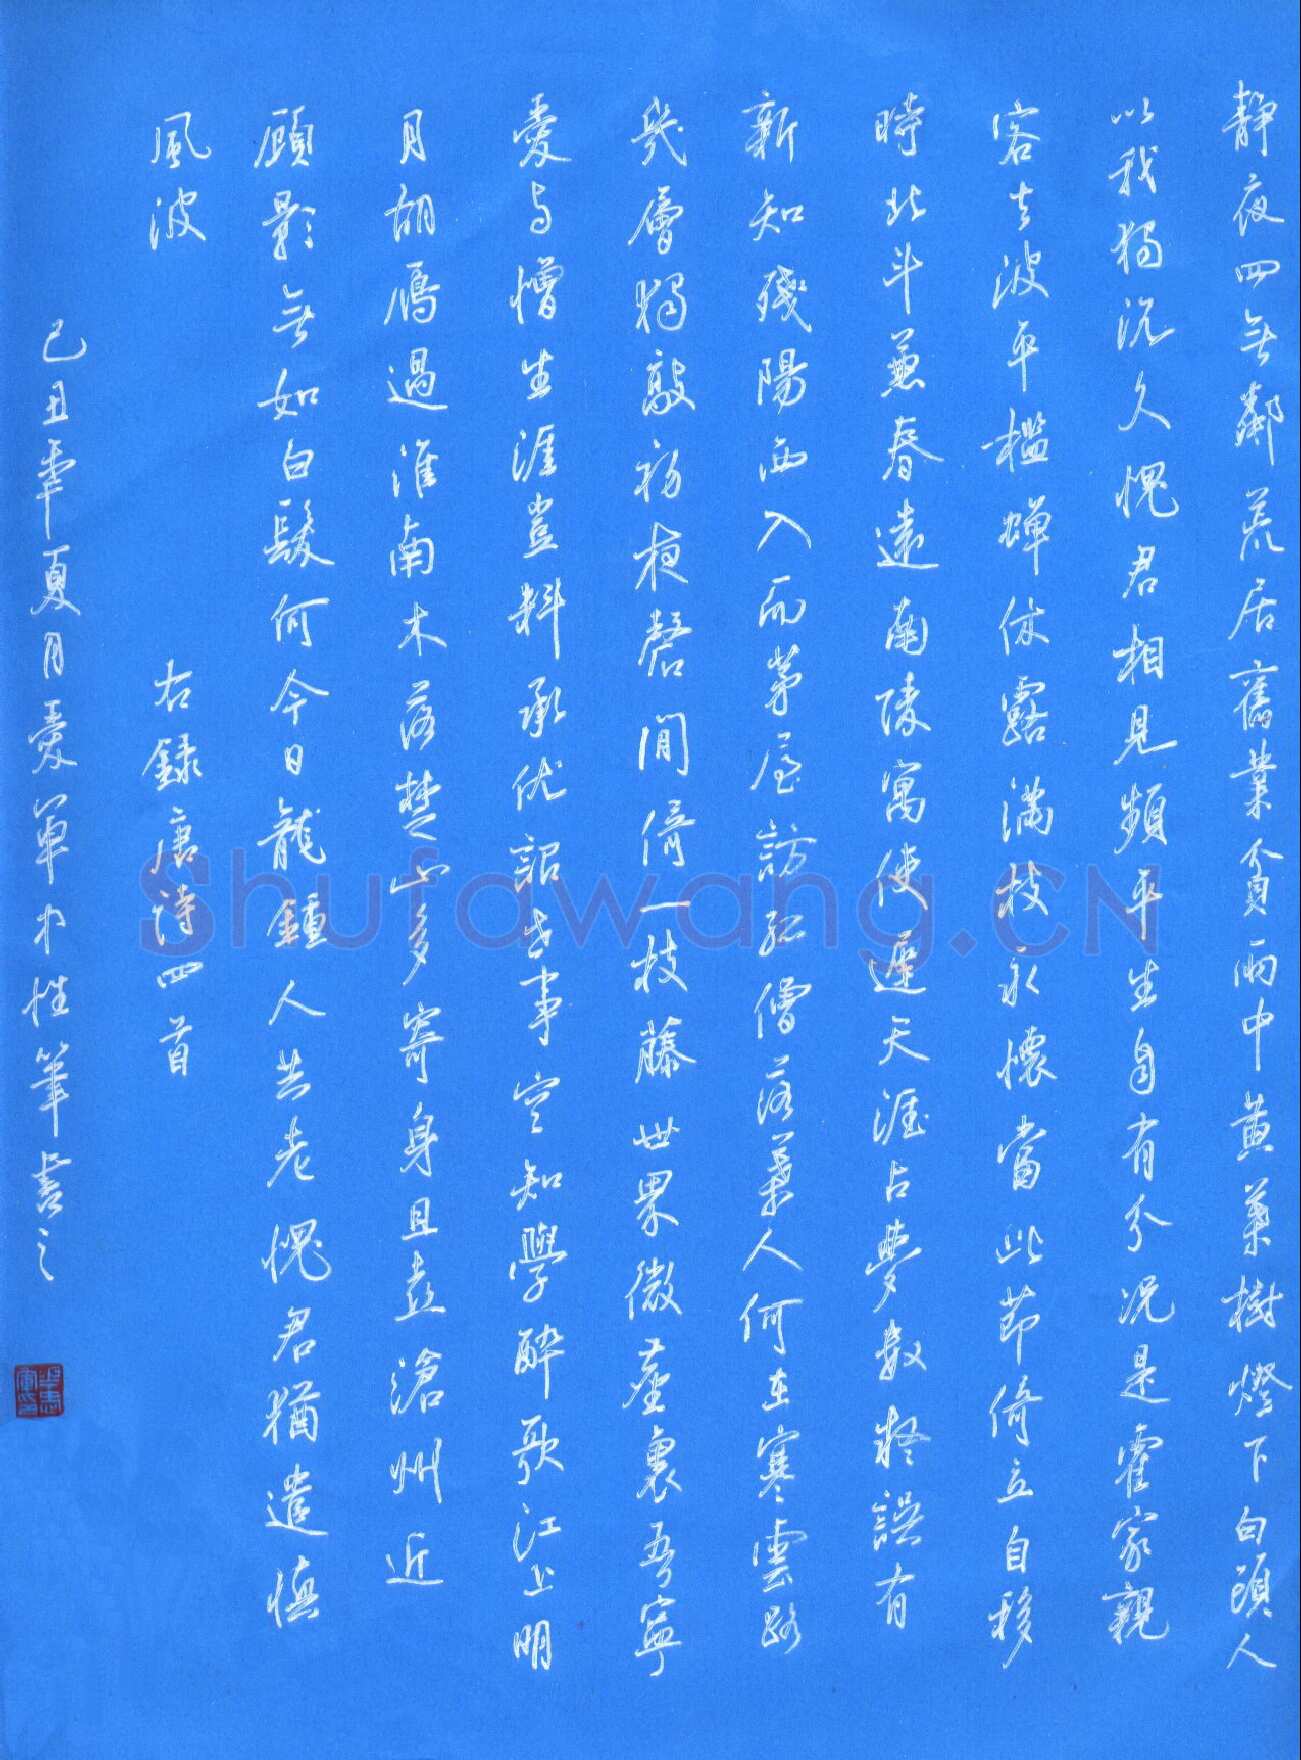 静夜四無鄰荒居舊業貧雨中黄葉樹燈下白頭人
以我獨沉久愧君相見頻平生自有分况是霍家親
客去波平檻蟬休露滿枝永懷當此節倚立自移
時北斗兼春遠南陵寓使遲天涯占夢數疑誤有
新知殘陽西入而茅屋訪孤僧落葉人何在寒雲路
幾層獨敲初夜磬閒倚一枝藤世界微塵裏吾寧
愛与憎生涯豈料承优詔世事空知學醉歌江上明
月胡雁過淮南木落楚山多寄身且喜滄州近
顧影無如白髮何今日龍鍾人共老愧君猶遣慎
風波
右録唐詩四首
己丑年夏月愛華中性筆書之
Shufawang.CN